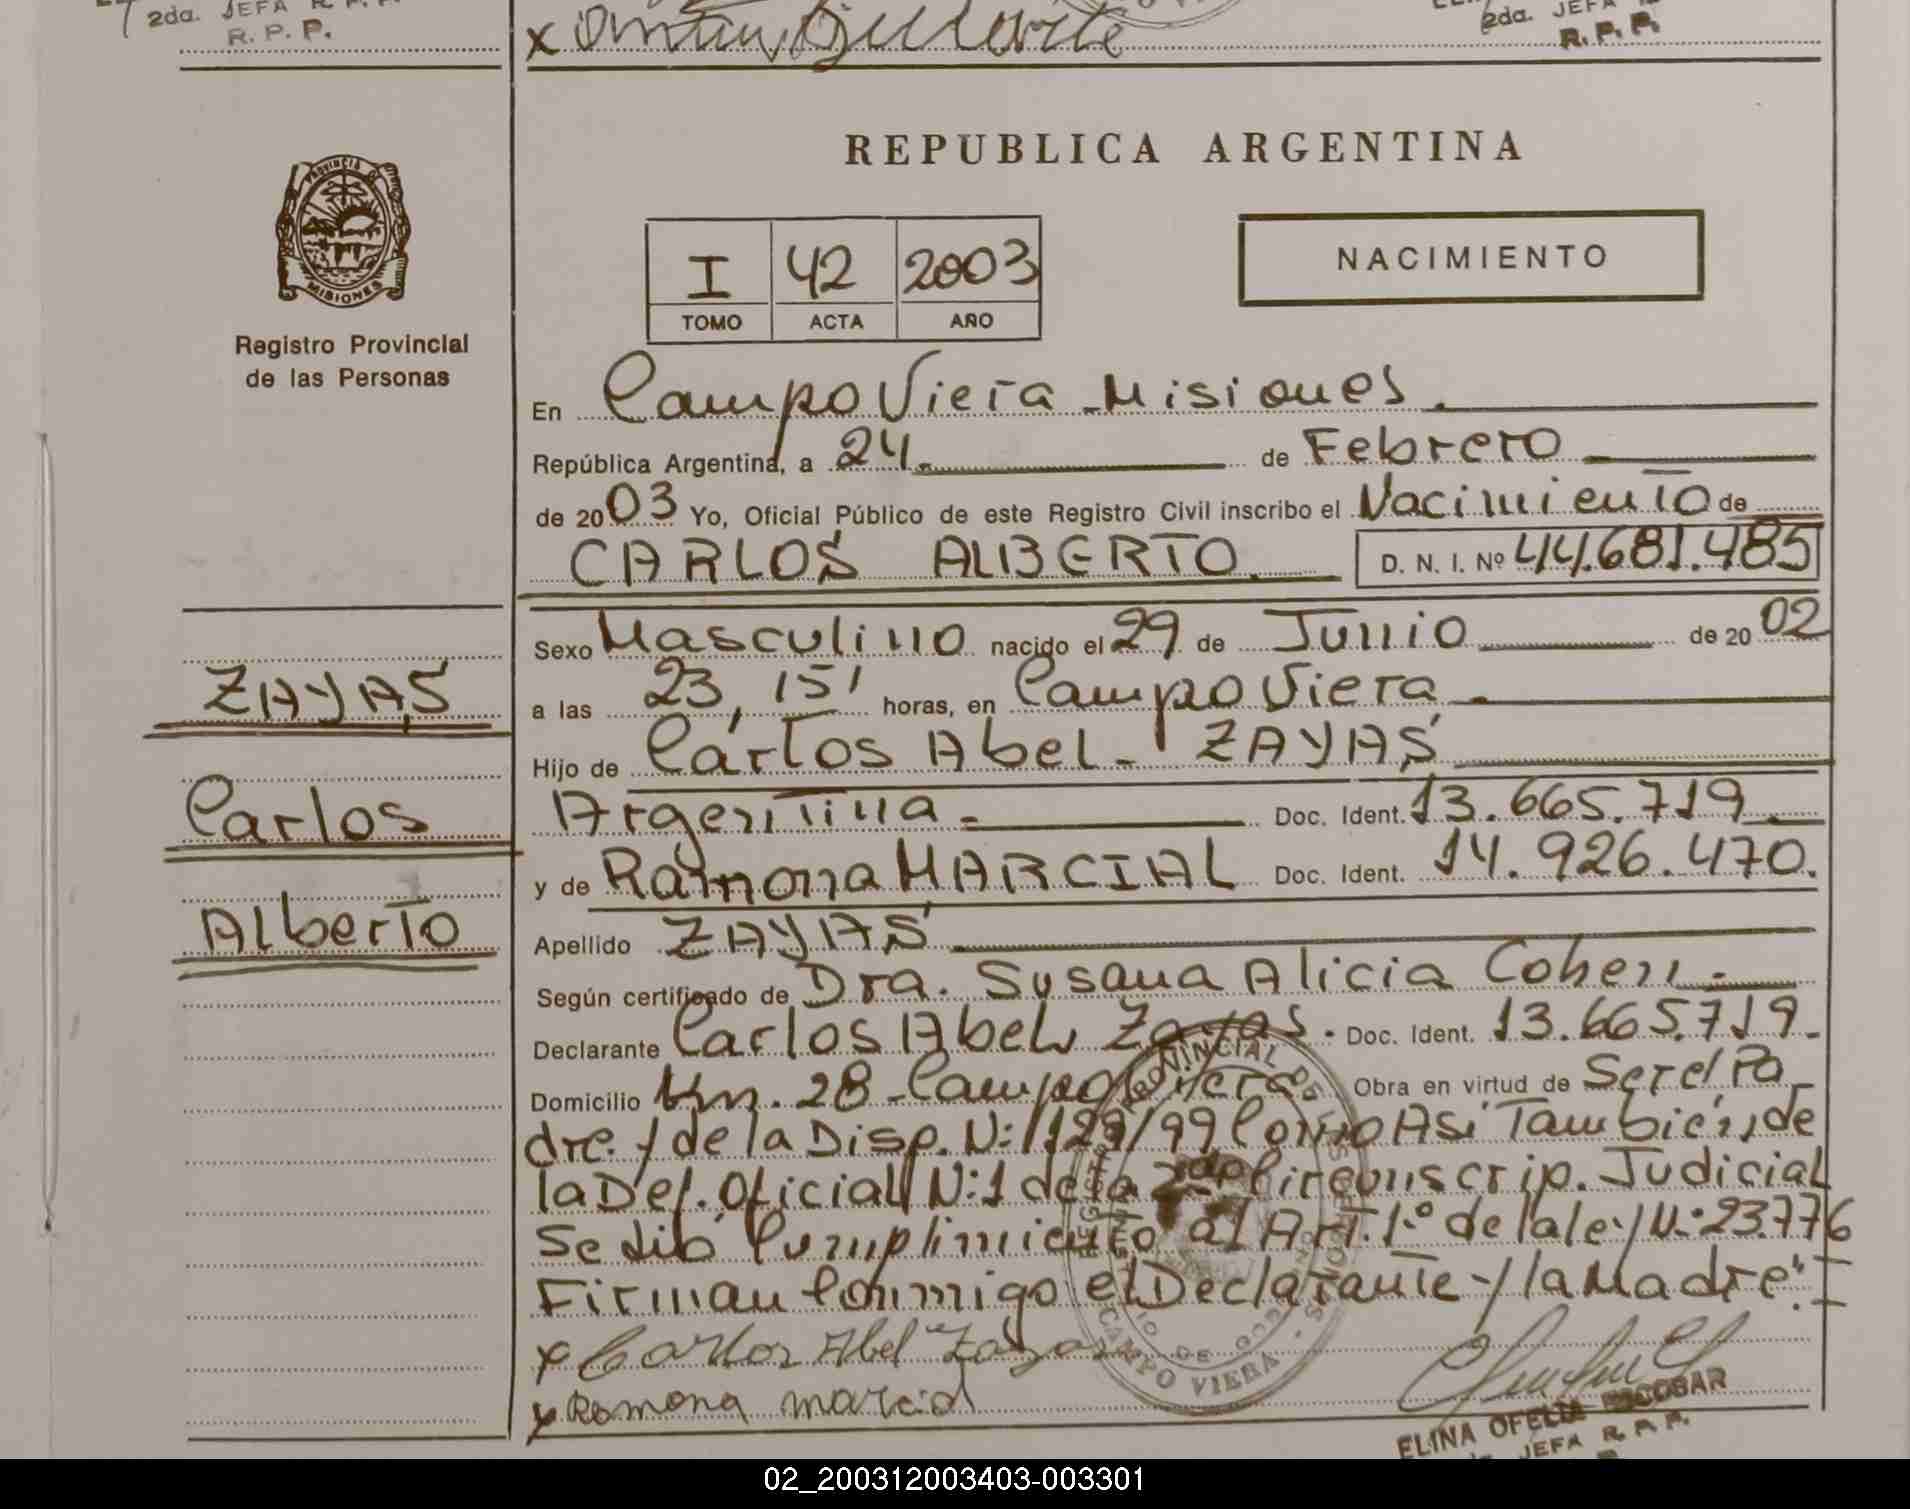 2da. JEFA R. P. P.
R. P. P.
2da. JEFA
R. P. P.
PROVINCIA DE
MISIONES
Registro Provincial
de las Personas
REPUBLICA ARGENTINA
I 42 2003
TOMO ACTA AÑO
NACIMIENTO
En Campo Viera - Misiones.
República Argentina, a 24. de Febrero
de 2003 Yo, Oficial Público de este Registro Civil inscribo el Nacimiento de
CARLOS ALBERTO. D. N. I. Nº 44.681.485
Sexo Masculino nacido el 29 de Junio de 2002
a las 23,15' horas, en Campo Viera -
Hijo de Carlos Abel - ZAYAS
Argentina - Doc. Ident. 13.665.719
y de Ramona MARCIAL Doc. Ident. 14.926.470.
Apellido ZAYAS
Según certificado de Dra. Susana Alicia Cohen -
Declarante Carlos Abel Zayas. Doc. Ident. 13.665.719.
Domicilio Km. 28 - Campo Viera Obra en virtud de Ser el Pa
dre y de la Disp. N: 1129/99 Como Así También, de
la Def. Oficial N:1 de la 2da Circunscrip. Judicial
Se dió Cumplimiento al Art. 1.º de la ley N.º 23.776
Firman Conmigo el Declarante y la Madre."
x Carlos Abel Zayas
x Ramona marcial
ZAYAS
Carlos
Alberto
CAMPO VIERA
ELINA OFELIA ESCOBAR
JEFA R. P. P.
02_200312003403-003301